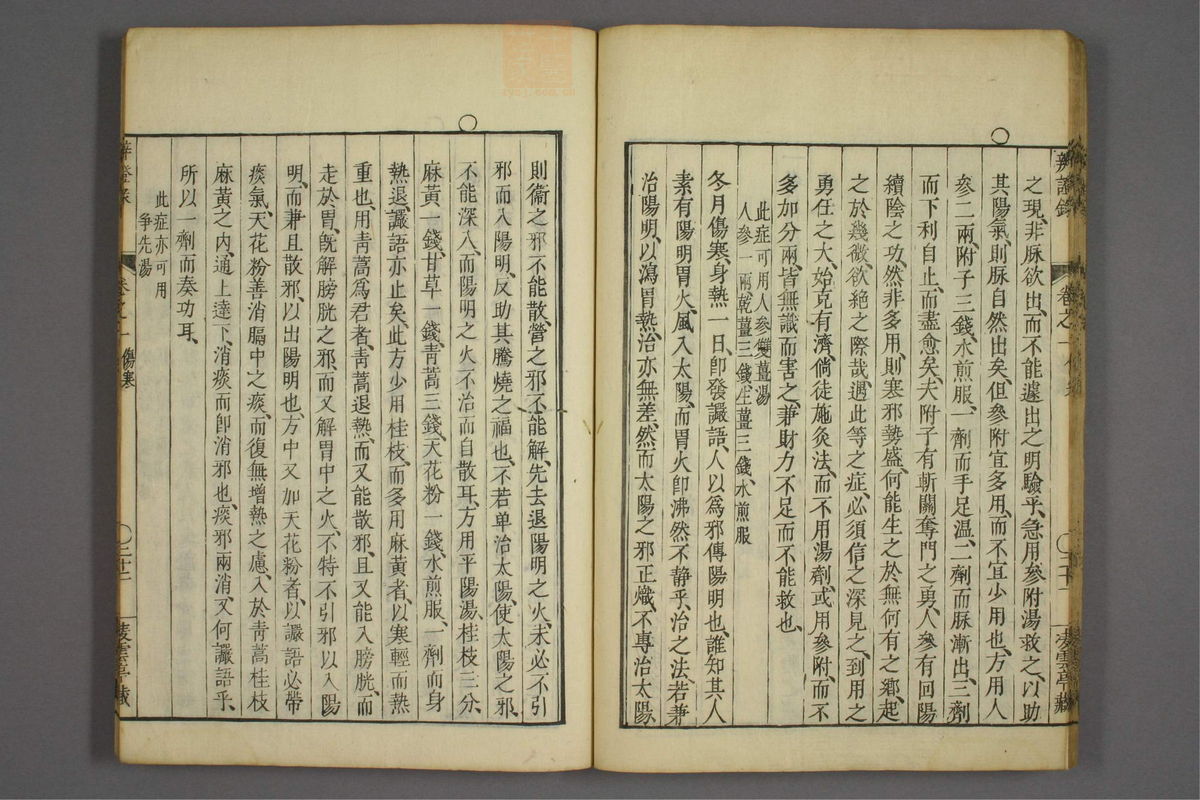 之現、非脉欲出、而不能遽出之明驗乎、急用參附湯救之、以助
其陽氣、則脉自然出矣、但參附宜多用、而不宜少用也、方用人
參二兩、附子三錢、水煎服、一劑而手足溫、二劑而脉漸出、三劑
而下利自止、而盡愈矣、夫附子有斬關奪門之勇、人參有回陽
續陰之功、然非多用、則寒邪勢盛、何能生之於無何有之鄉、起
之於幾微欲絕之際哉、遇此等之症、必須信之深、見之到、用之
勇、任之大、始克有濟、倘徒施灸法、而不用湯劑、或用參附、而不
多加分兩、皆無識而害之、兼財力不足而不能救也、
此症可用人參雙薑湯
人參一兩、乾薑三錢、生薑三錢、水煎服
冬月傷寒、身熱一日、即發讝語、人以爲邪傳陽明也、誰知其人
素有陽明胃火、風入太陽、而胃火即沸然不靜乎、治之法、若兼
治陽明、以瀉胃熱、治亦無差、然而太陽之邪正熾、不專治太陽、
辨證錄
卷之一
凌雲亭藏
則衛之邪不能散、營之邪不能解、先去退陽明之火、未必不引
邪而入陽明、反助其騰燒之禍也、不若单治太陽、使太陽之邪、
不能深入、而陽明之火、不治而自散耳、方用平陽湯、桂枝三分、
麻黃一錢、甘草一錢、青蒿三錢、天花粉一錢、水煎服、一劑而身
熱退、讝語亦止矣、此方少用桂枝、而多用麻黃者、以寒輕而熱
重也、用青蒿爲君者、青蒿退熱、而又能散邪、且又能入膀胱、而
走於胃、既解膀胱之邪、而又解胃中之火、不特不引邪以入陽
明、而兼且散邪、以出陽明也、方中又加天花粉者、以讝語必帶
痰氣、天花粉善消膈中之痰、而復無增熱之慮、入於青蒿桂枝
麻黃之內、通上達下、消痰而即消邪也、痰邪兩消、又何讝語乎、
所以一劑而奏功耳、
此症亦可用
爭先湯
辨證錄
卷之一
傷寒
三十二
凌雲亭藏